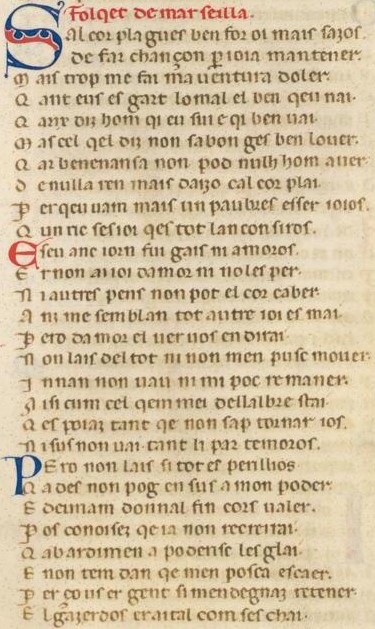 Folqet de marseilla.
Sal cor plagues ben for oi mais sazos.
de far chançon per ioia mantener.
Mais trop me fai ma uentura doler.
Qant eus es gart lo mal el ben qeu nai.
Qarix diz hom qi eu sui e qi ben uai.
Mas cel qel diz non sab on ges ben lo uer.
Qar benenansa non pod nulh hom auer.
de nulla ren mais daizo cal cor plai.
Per qeu uam mais un paubres esser ioios.
Qun ric ses ioi qes tot lan consiros.
E seu anc iorn fui gais ni amoros.
Er non ai ioi damor ni no les per.
Ni autres pens non pot el cor caber.
Ani me semblan tot autre ioi esmai.
Pero damor el uer uos en dirai.
Non lais del tot ni non men pusc mouer.
Innan non uau ni mi poc remaner.
Aisi cum cel qem mei dellalbre stai.
Qes poiaz tant qe non sap tornar ios.
Ni sus non uai. tant li par temoros.
Pero non lais si tot es perillios
Qades non pog en sus a mon poder.
E deuriam donnal fin cors ualer.
Pos conoisez qe ia non recreirai.
Qab ardimen apodense lesglai.
E non tem dan qe men posca escaer.
Per co us er gent si men degnaz retener.
El gazerdos er aital com ses chai.